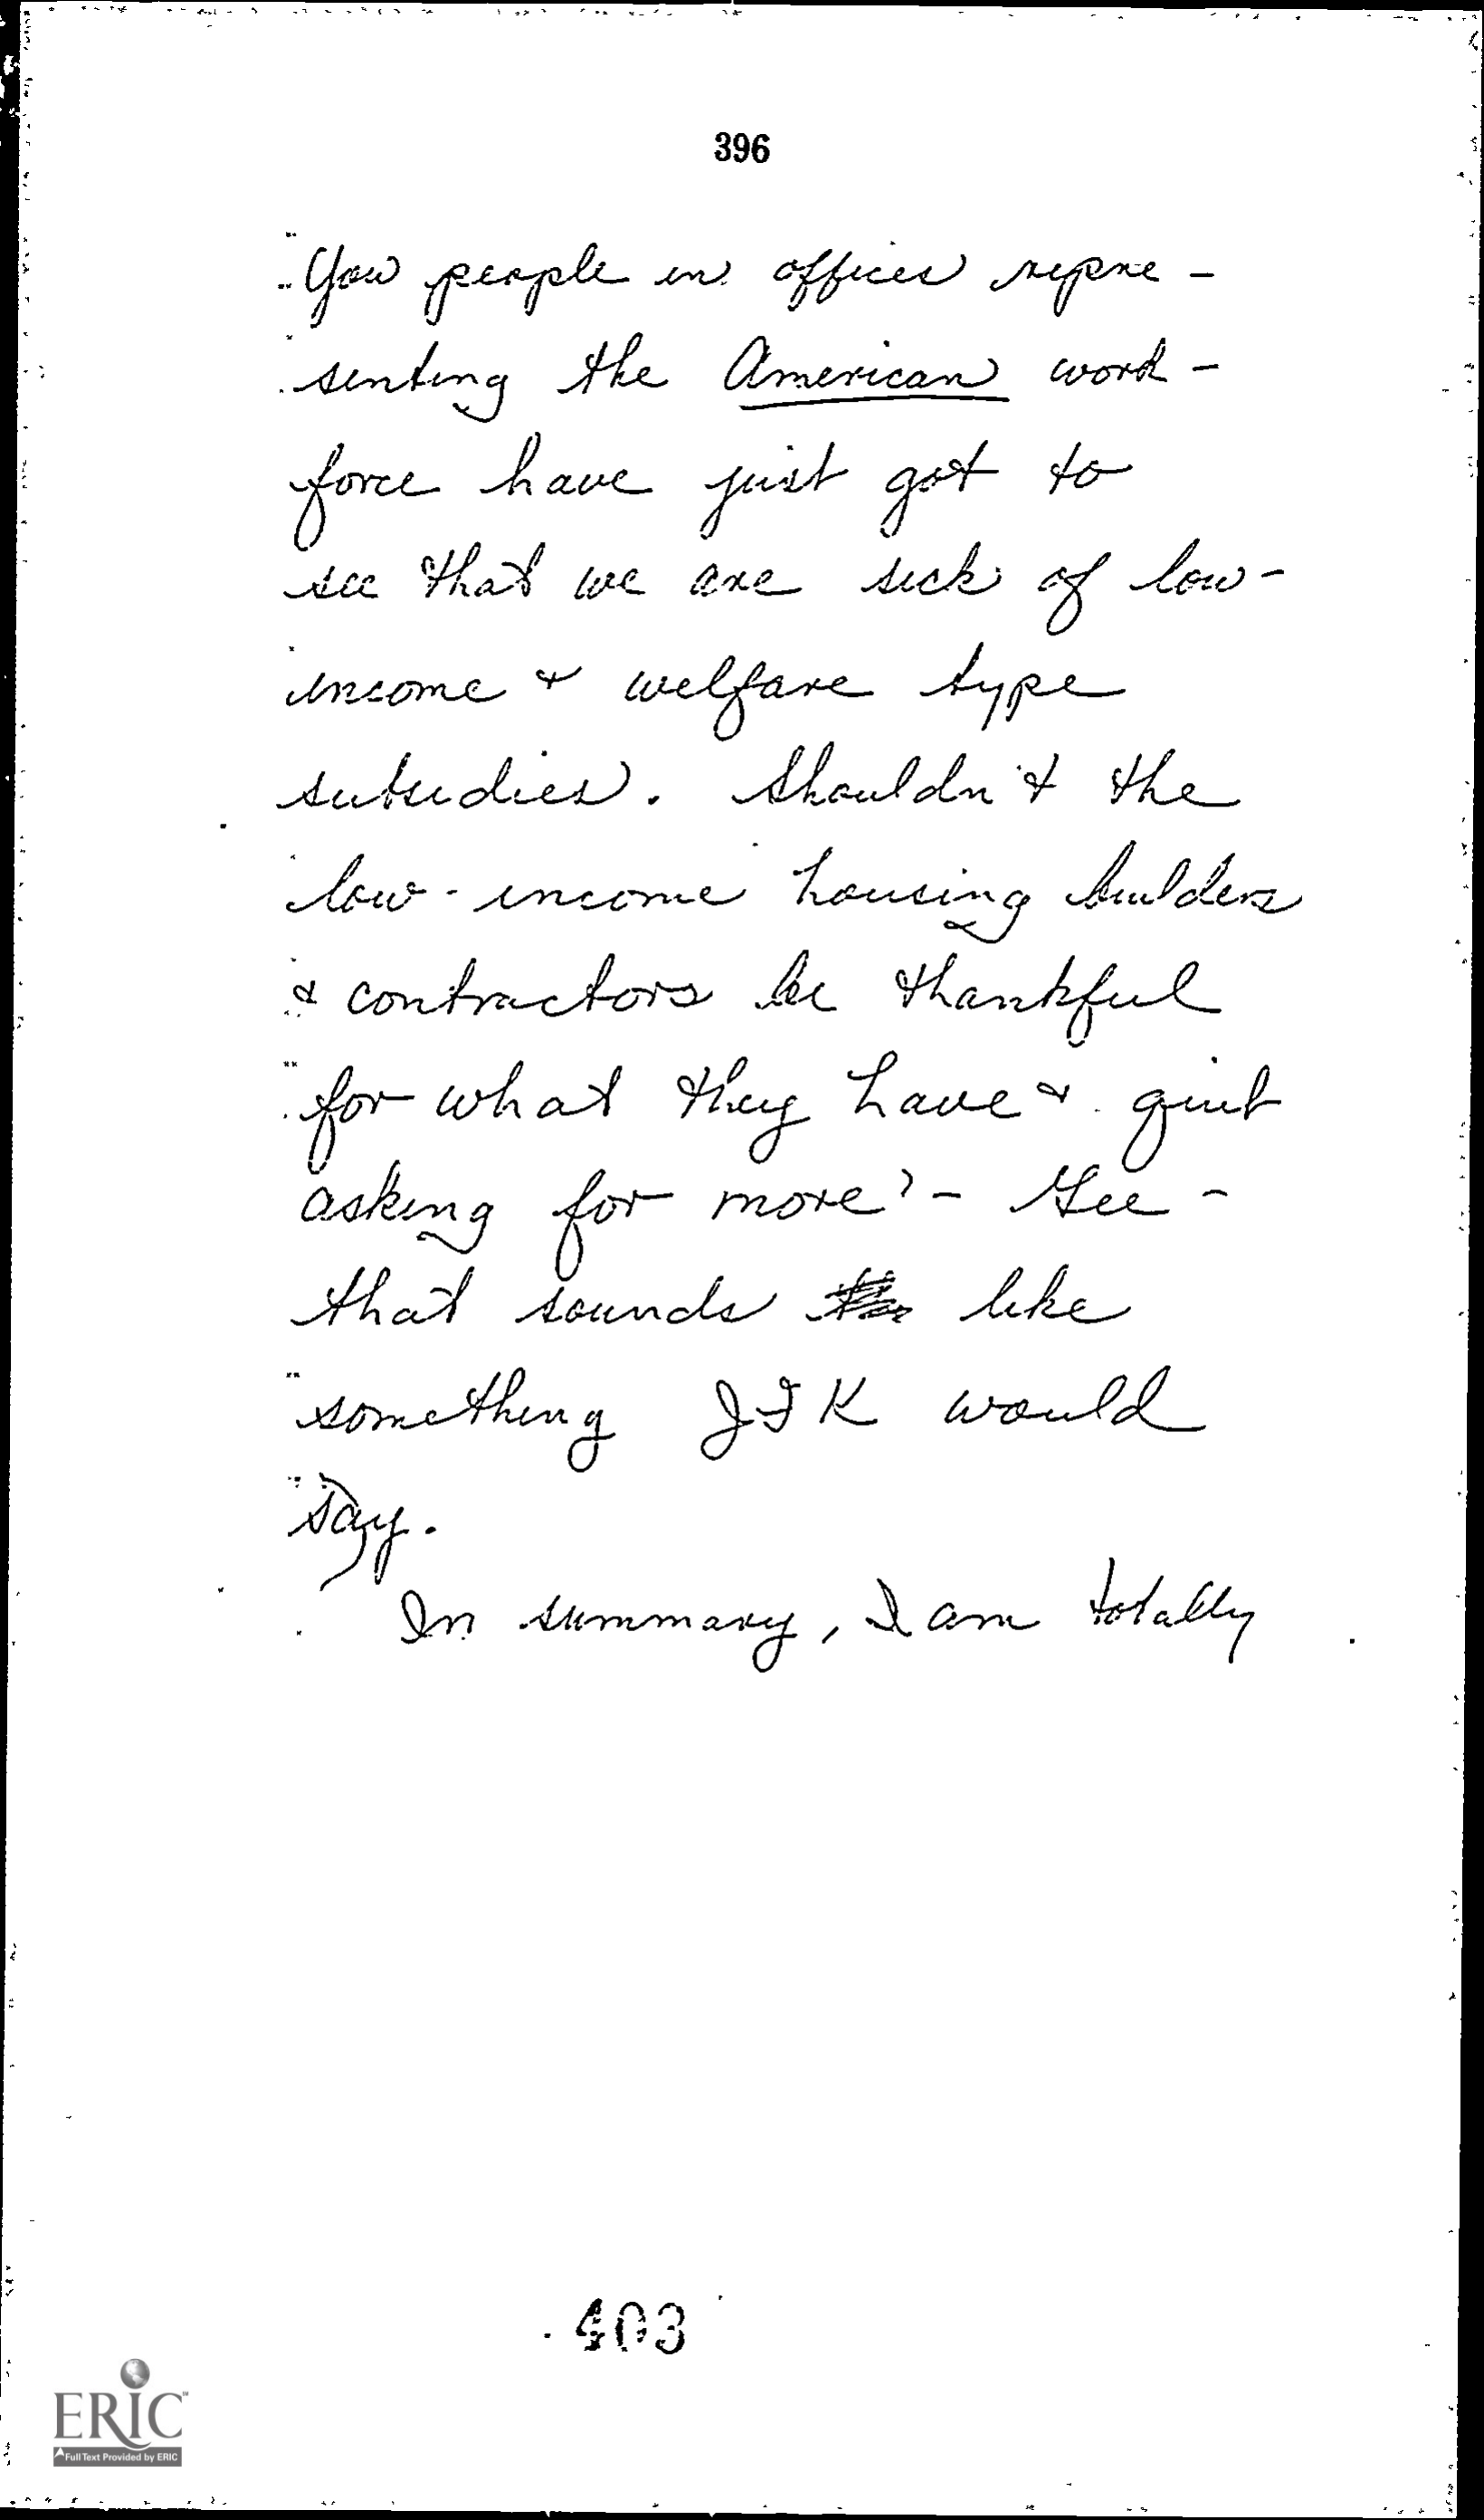 396
You people in offices repre-
senting the American work-
force have just got to
see that we are sick of low-
income & welfare type
subsidies. Shouldn't the
low-income housing builders
& contractors be thankful
for what they have & quit
asking for more? - Gee -
that sounds like
something JFK would
say.
In summary, I am totally
403
ERIC
Full Text Provided by ERIC